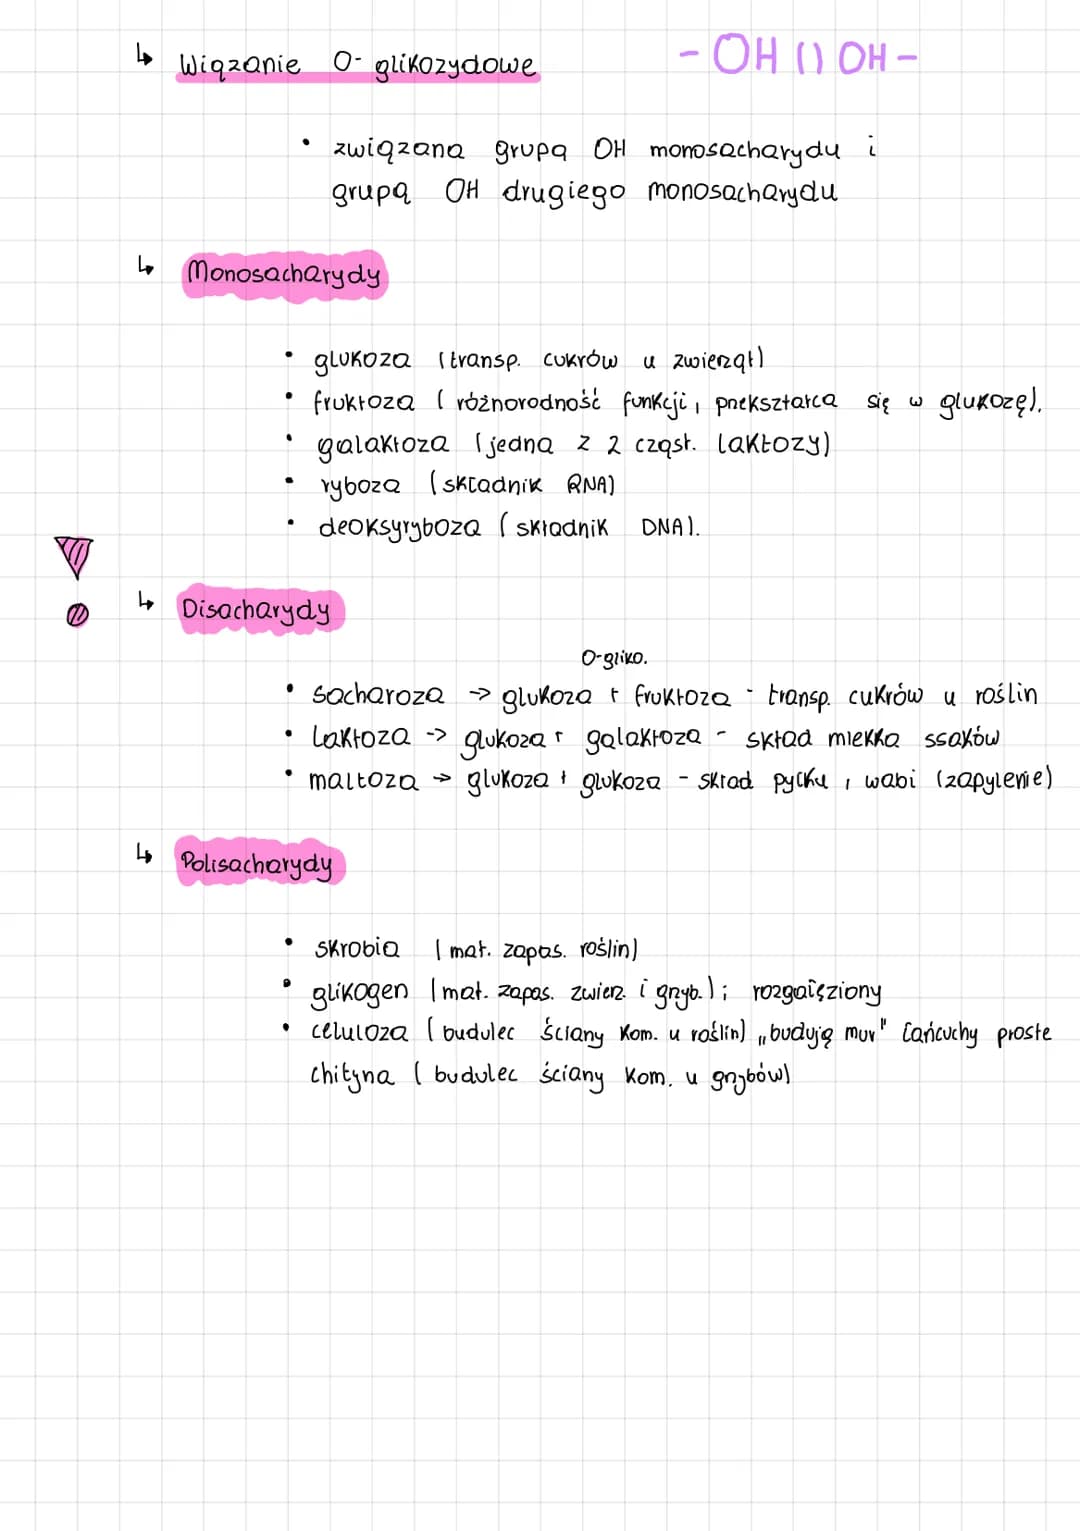 ↳ Wiązanie O-glikozydowe
- OH () OH -
• związana grupą OH monosacharydu i
grupą OH drugiego monosacharydu
↳ Monosacharydy
• glukoza (transp. cukrów u zwierząt)
• fruktoza (różnorodność funkcji, przekształca się w glukozę).
• galaktoza (jedna z 2 cząst. laktozy)
• ryboza (składnik RNA)
• deoksyryboza (składnik DNA).
↳ Disacharydy
O-gliko.
• sacharoza → glukoza + fruktoza - transp. cukrów u roślin
• laktoza -> glukoza + galaktoza - skład mlekka ssaków
• maltoza → glukoza + glukoza - skład pyłku, wabi (zapylenie)
↳ Polisacharydy
• skrobia (mat. zapas. roślin)
• glikogen (mat. zapas. zwierz. i grzyb.); rozgałęziony
• celuloza (budulec ściany kom. u roślin) „budują mur" łańcuchy proste
chityna (budulec ściany kom. u grzybów)